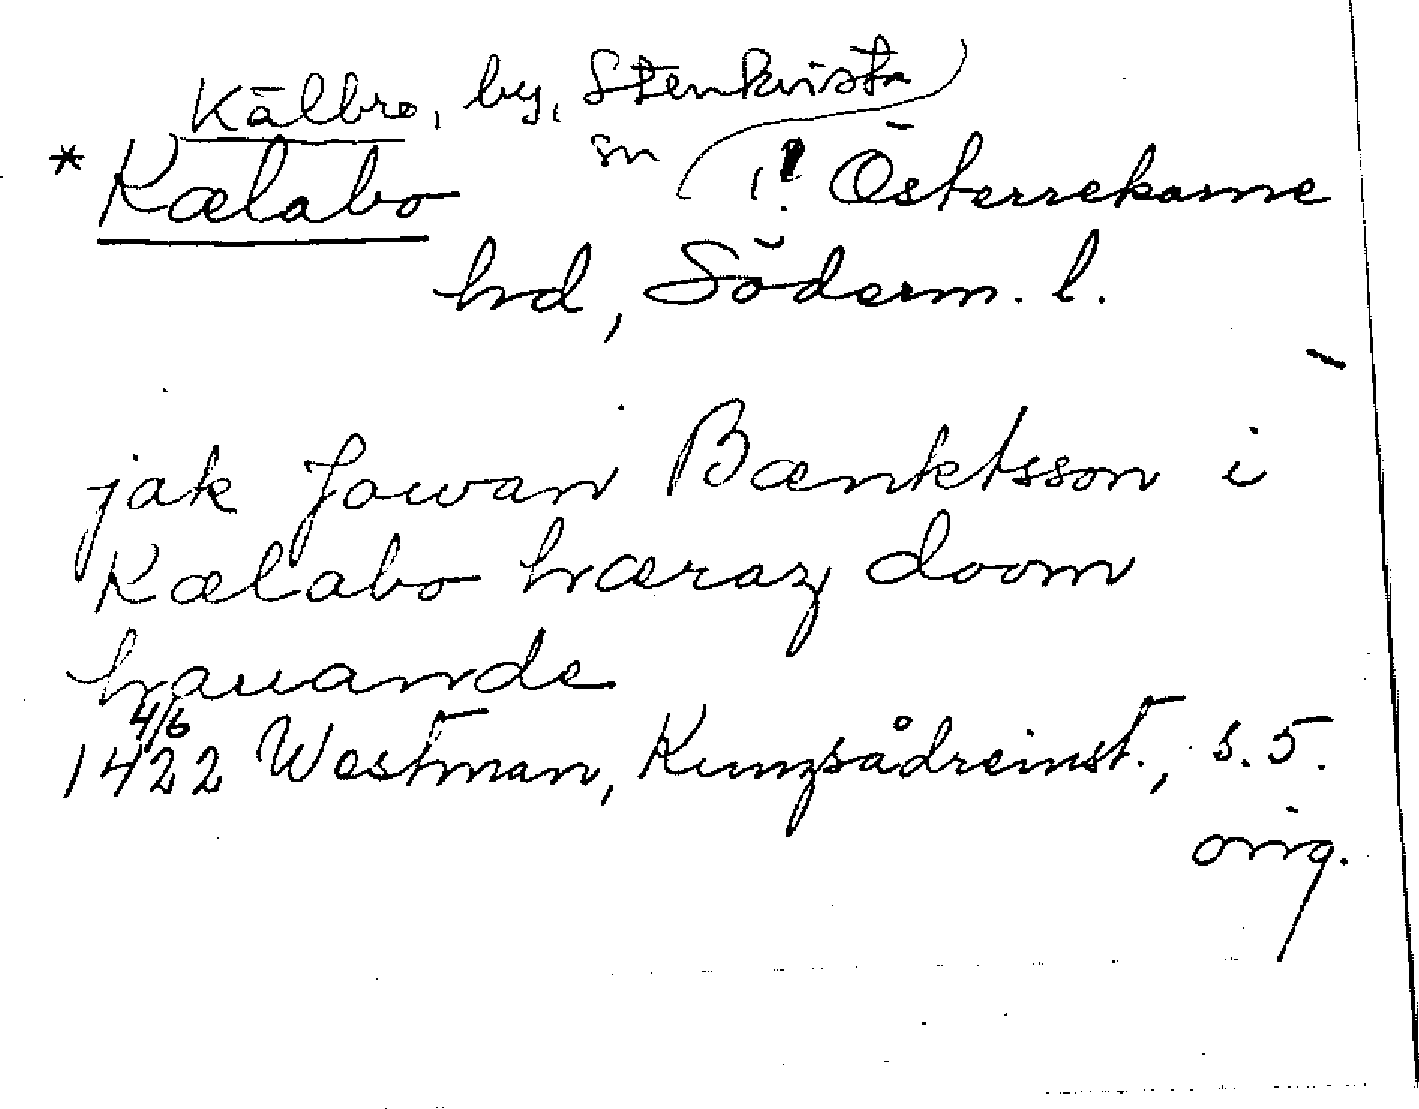 Kälbro, by, Stenkvista
sn
* Kælabo ! Österrekarne
hd, Söderm. l.
jak Jowan Bænktsson i
Kælabo hæraz doom
hauande
4/6
1422 Westman, Kungsådreinst., s. 5.
orig.